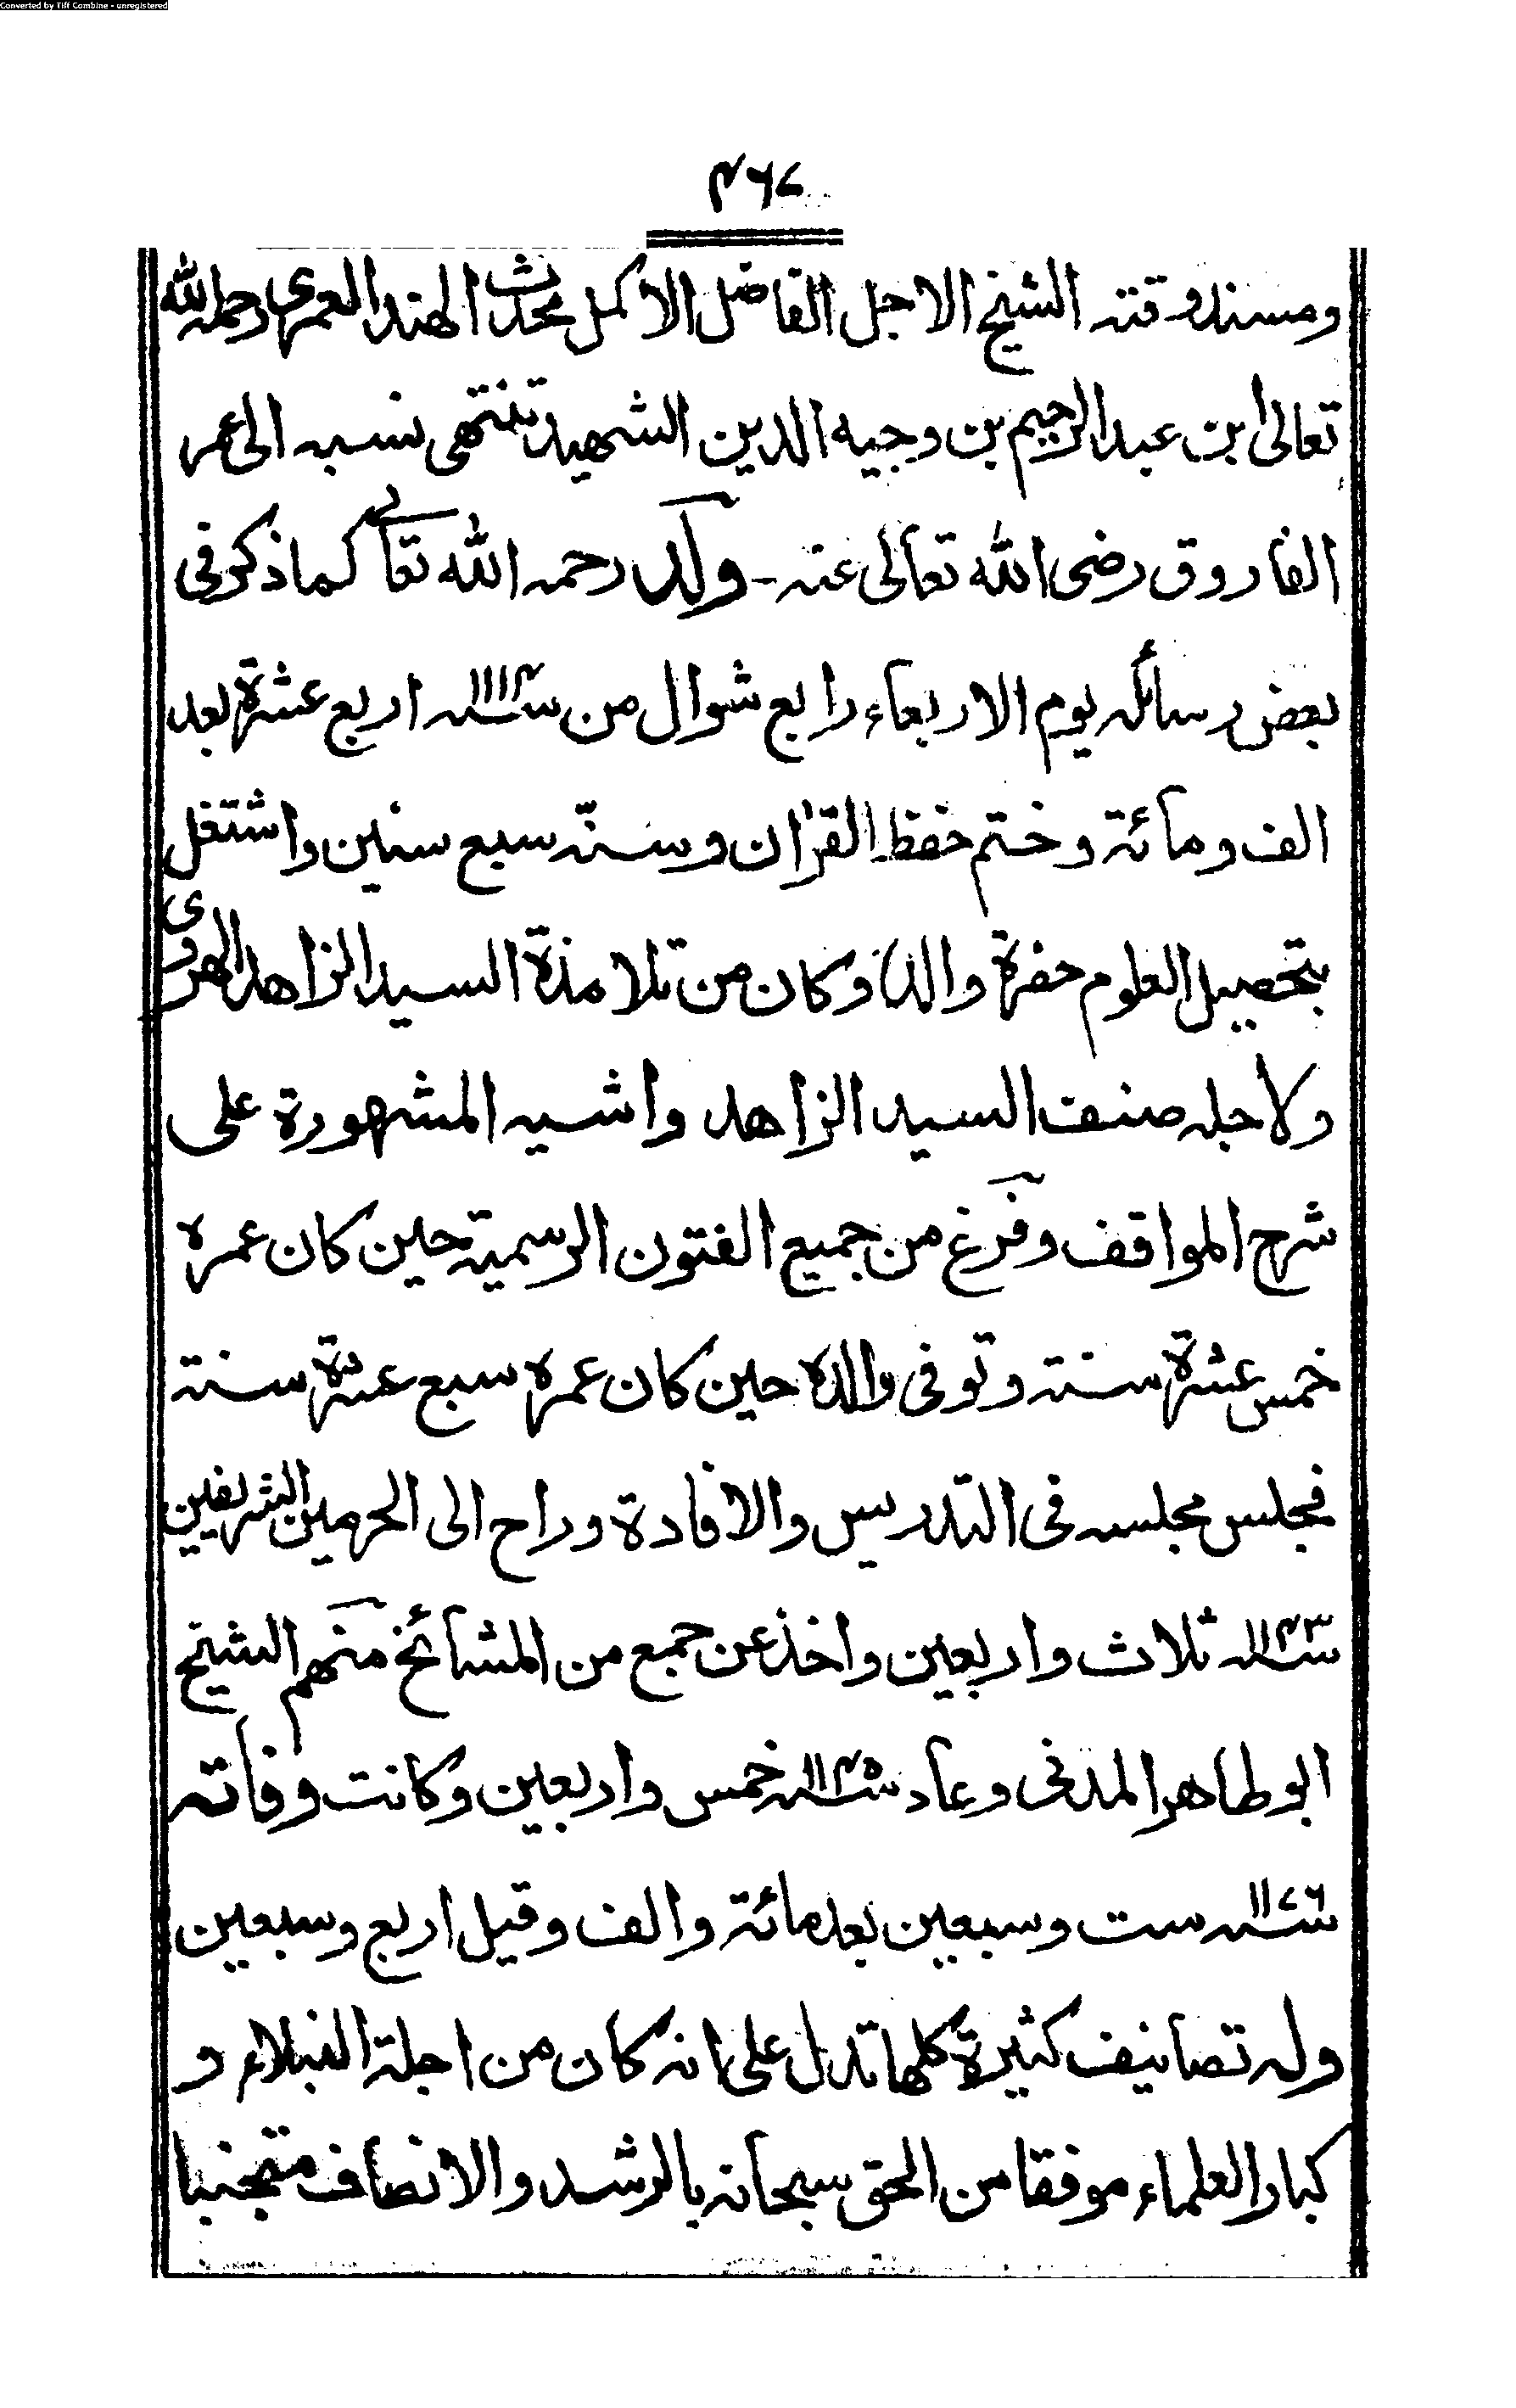 Converted by Tiff Combine - unregistered
۴۶۷
ومسند وقته الشيخ الاجل الفاضل الاكمل محدث الهند العمرى رحمه الله
تعالى ابن عبد الرحيم بن وجيه الدين الشهيد تنتهى نسبه الى عمر
الفاروق رضى الله تعالى عنه - ولد رحمه الله تعالى كما ذكر فى
بعض رسائله يوم الاربعاء رابع شوال من سنه ۱۱۱۴ اربع عشرة بعد
الف ومائة وختم حفظ القران وسنه سبع سنين واشتغل
بتحصيل العلوم حضرة والده وكان من تلامذة السيد الزاهد الهروى
ولاجله صنف السيد الزاهد واشيه المشهورة على
شرح المواقف وفرغ من جميع الفنون الرسمية حين كان عمره
خمس عشرة سنة وتوفى والده حين كان عمره سبع عشرة سنة
فجلس مجلسه فى التدريس والافادة وراح الى الحرمين الشريفين
سنه ۱۱۴۳ ثلاث واربعين واخذ عن جمع من المشائخ منهم الشيخ
ابو طاهر المدنى وعاد سنه ۱۱۴۵ خمس واربعين وكانت وفاته
سنه ۱۱۷۶ ست وسبعين بعد مائة والف وقيل اربع وسبعين
وله تصانيف كثيرة كلها تدل على انه كان من اجلة النبلاء و
كبار العلماء موفقا من الحق سبحانه بالرشد والانصاف متجنبا